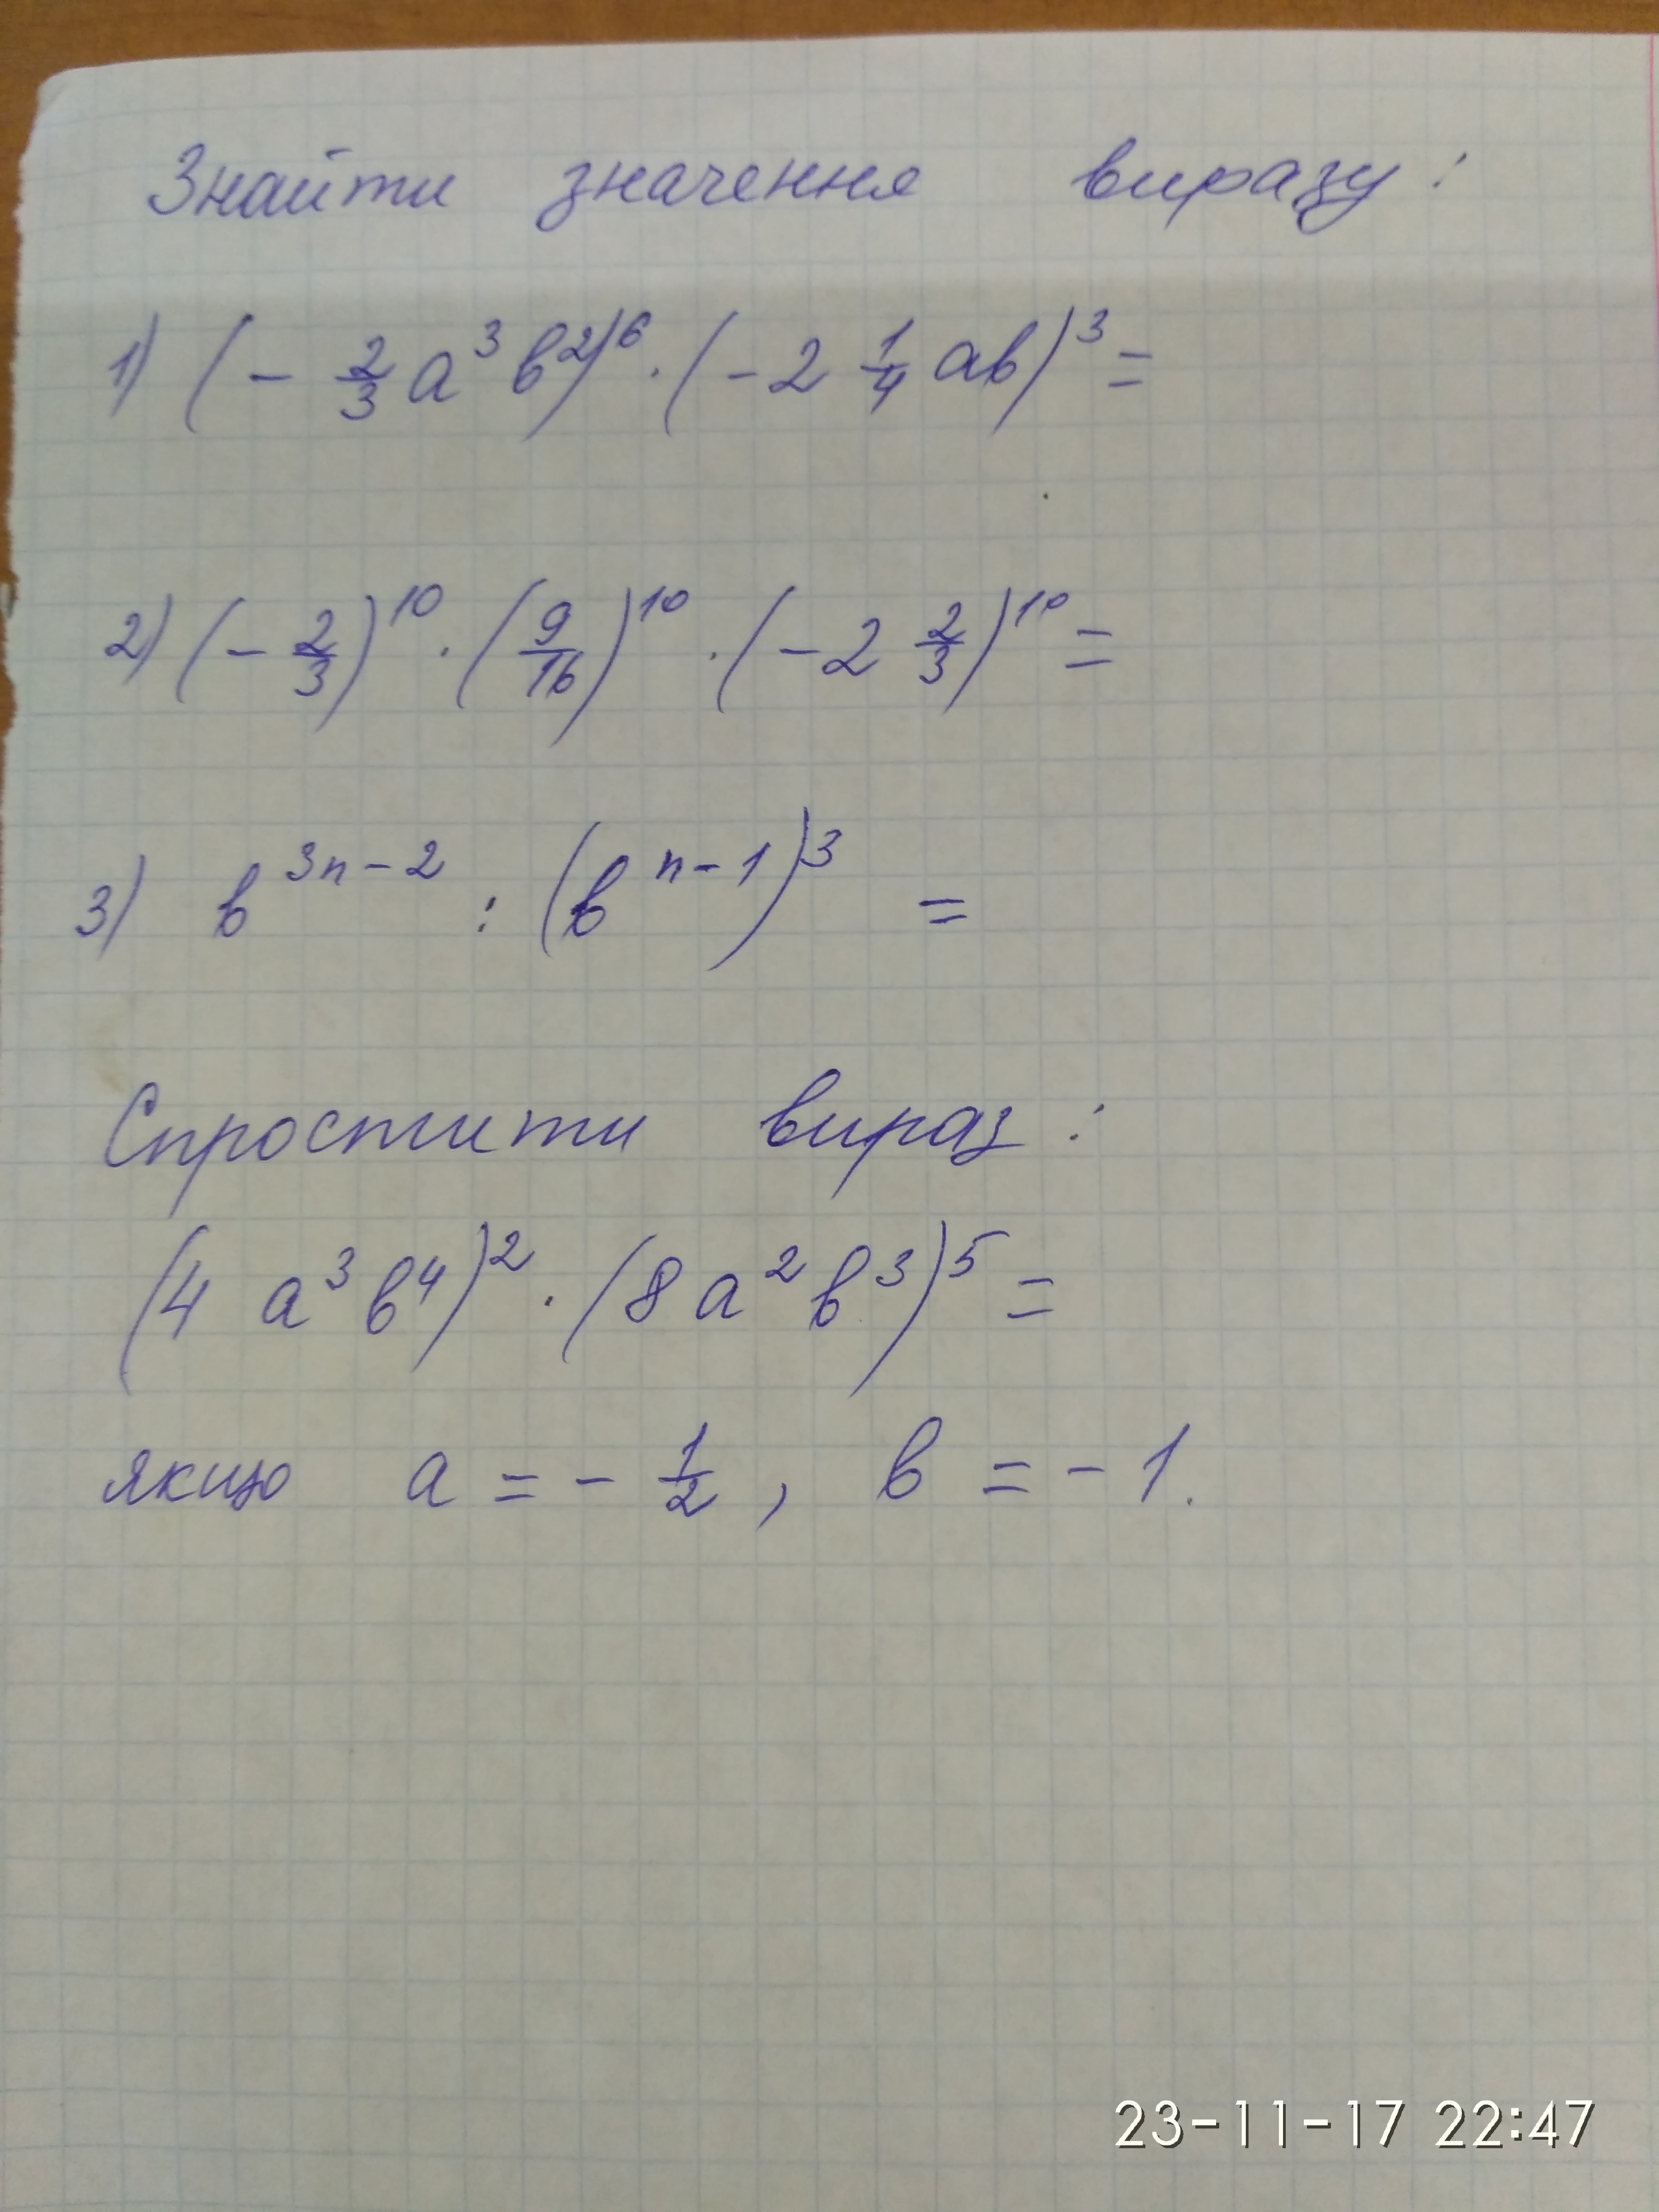 Знайти значення виразу:
1) (- 2/3 a³ b²)⁶ · (- 2 1/4 ab)³ =
2) (- 2/3)¹⁰ · (9/16)¹⁰ · (- 2 2/3)¹⁰ =
3) b³ⁿ⁻² : (bⁿ⁻¹)³ =
Спростити вираз:
(4 a³ b⁴)² · (8 a² b³)⁵ =
якщо a = - 1/2, b = - 1.
23-11-17 22:47